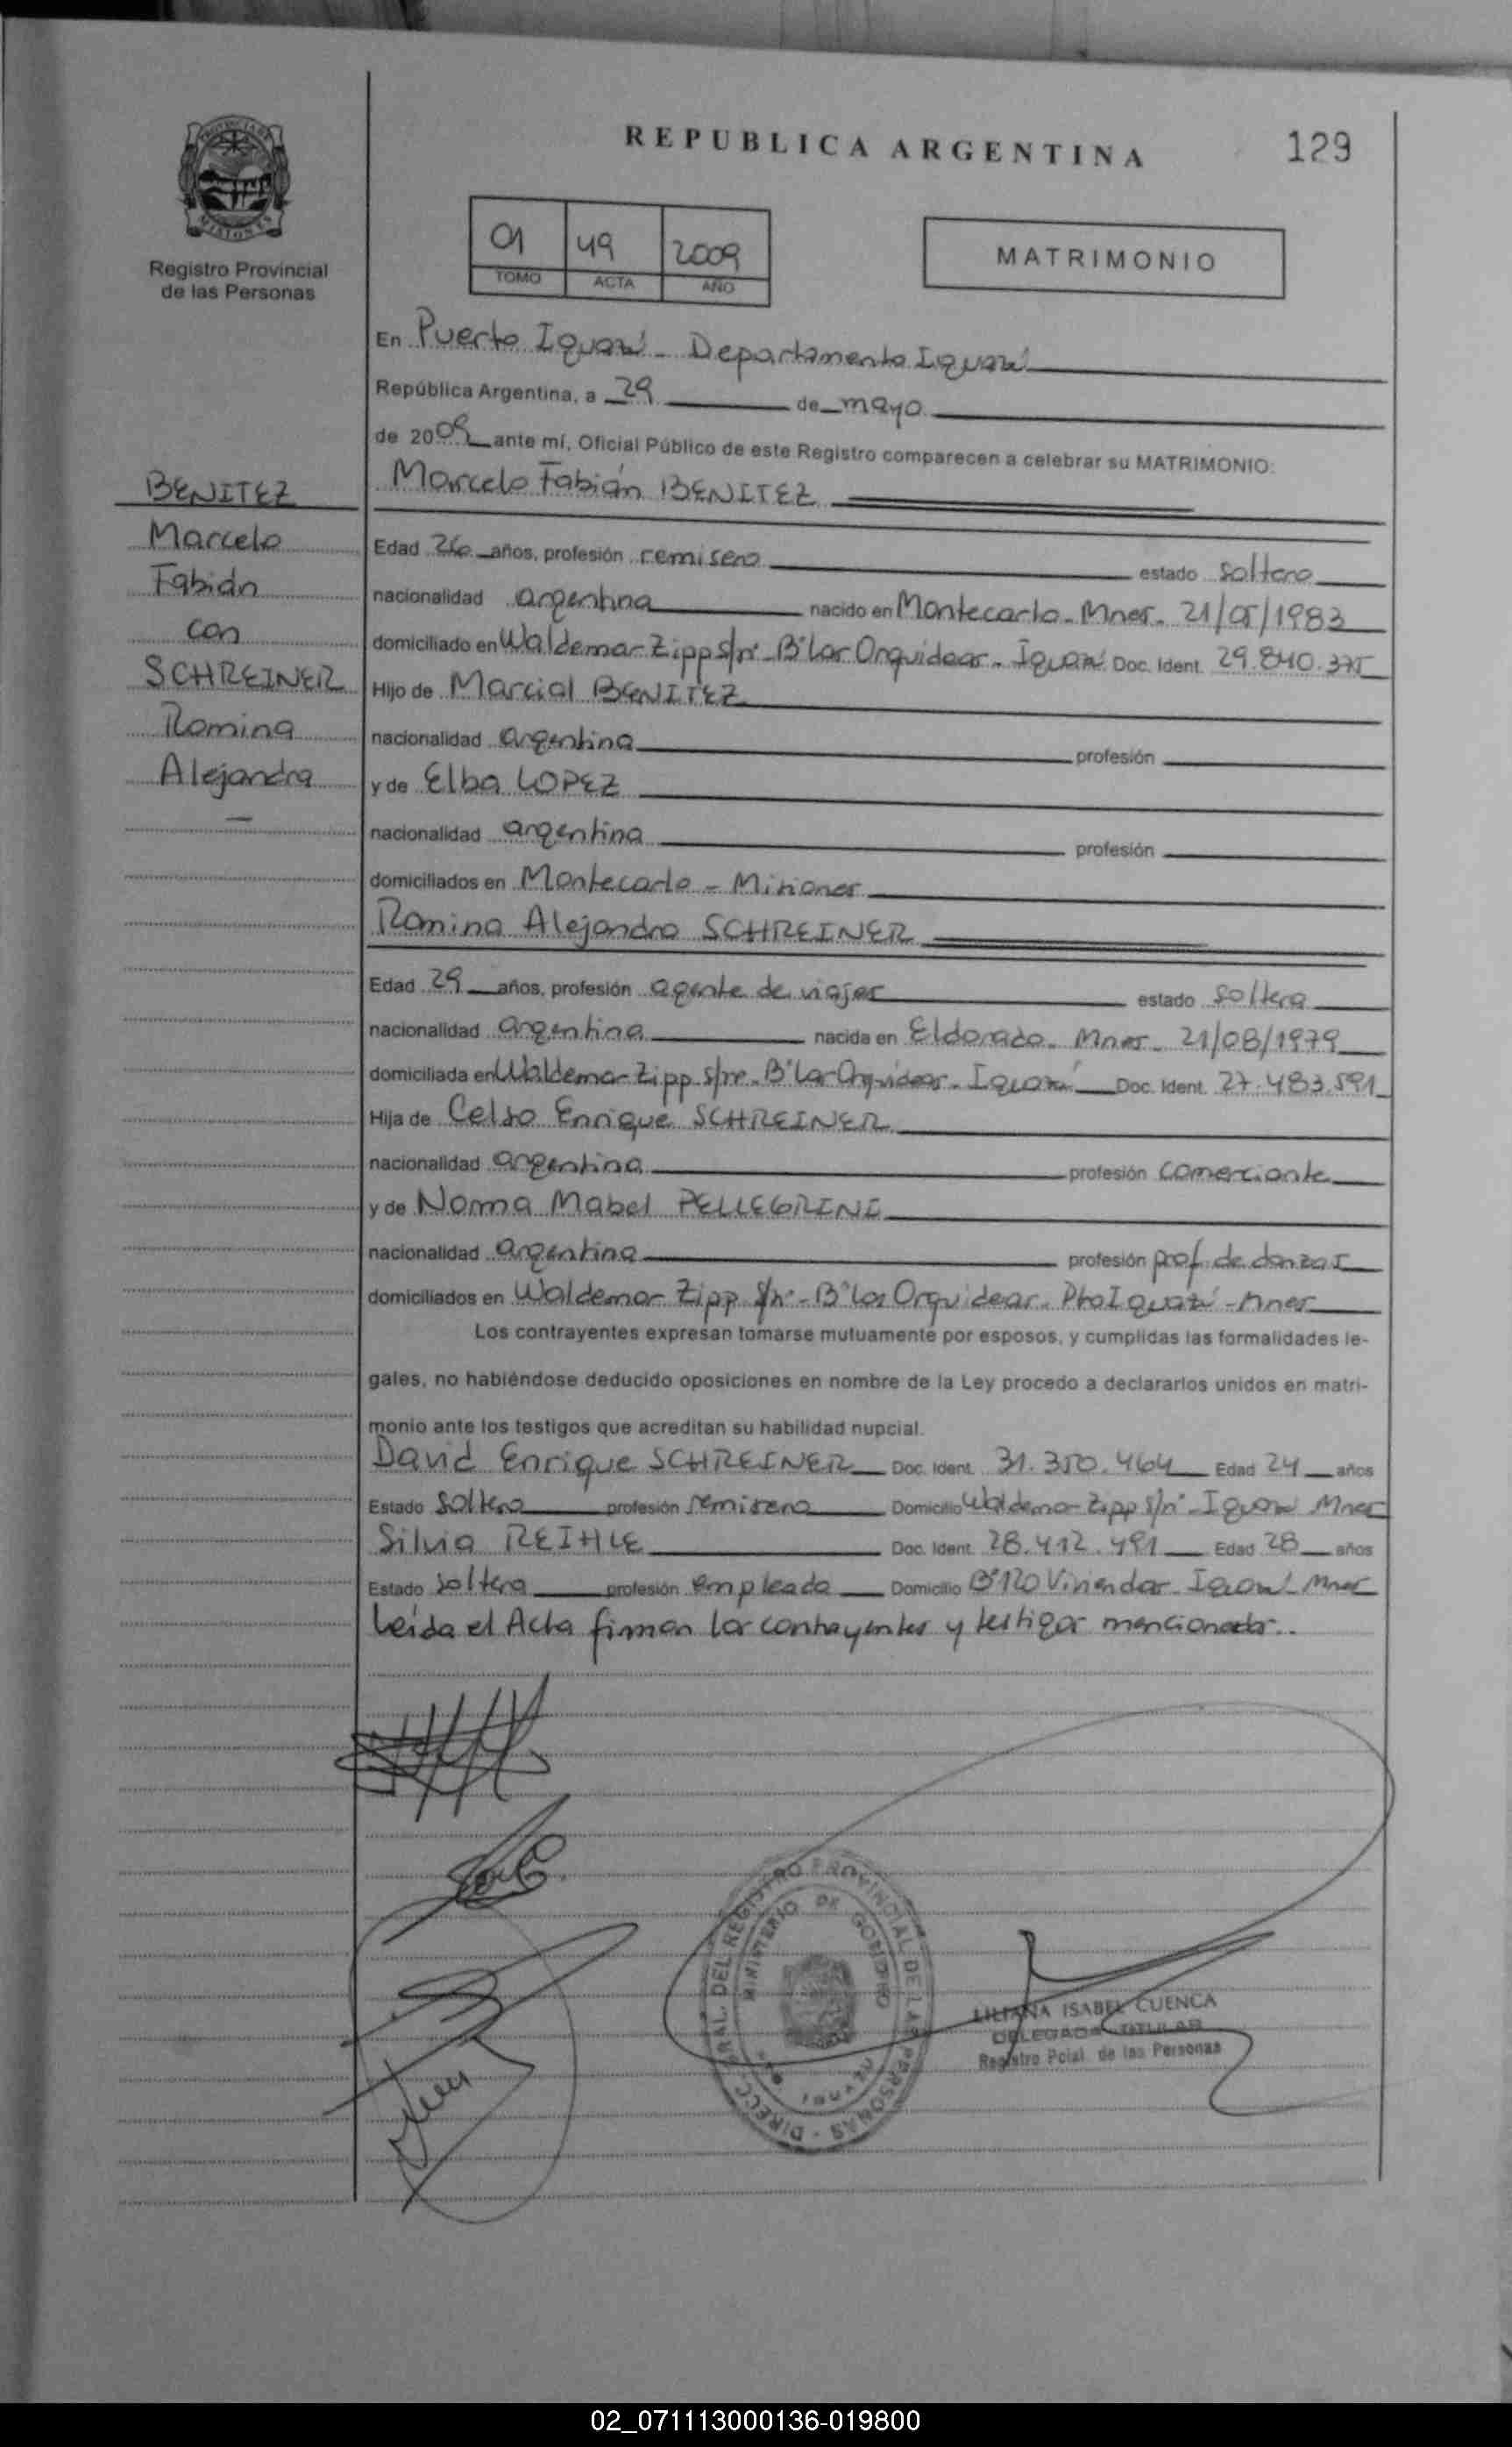 REPUBLICA ARGENTINA
129
PROVINCIA DE
MISIONES
Registro Provincial
de las Personas
01 49 2009
TOMO ACTA AÑO
MATRIMONIO
En Puerto Iguazú - Departamento Iguazú
República Argentina, a 29 de mayo
de 2009 ante mí, Oficial Público de este Registro comparecen a celebrar su MATRIMONIO:
Marcelo Fabián BENITEZ
BENITEZ
Marcelo
Fabián
con
SCHREINER
Romina
Alejandra
Edad 26 años, profesión remisero estado soltero
nacionalidad argentina nacido en Montecarlo - Mnes - 21/05/1983
domiciliado en Waldemar Zipp s/nº - Bº Las Orquideas - Iguazú Doc. Ident. 29.840.375
Hijo de Marcial BENITEZ
nacionalidad argentina profesión
y de Elba LOPEZ
nacionalidad argentina profesión
domiciliados en Montecarlo - Misiones
Romina Alejandra SCHREINER
Edad 29 años, profesión agente de viajes estado soltera
nacionalidad argentina nacida en Eldorado - Mnes - 21/08/1979
domiciliada en Waldemar Zipp s/nº - Bº Las Orquideas - Iguazú Doc. Ident. 27.483.591
Hija de Celso Enrique SCHREINER
nacionalidad argentina profesión comerciante
y de Norma Mabel PELLEGRINI
nacionalidad argentina profesión prof. de danzas
domiciliados en Waldemar Zipp s/nº - Bº Las Orquideas - Pto Iguazú - Mnes
Los contrayentes expresan tomarse mutuamente por esposos, y cumplidas las formalidades le-
gales, no habiéndose deducido oposiciones en nombre de la Ley procedo a declararlos unidos en matri-
monio ante los testigos que acreditan su habilidad nupcial.
David Enrique SCHREINER Doc. Ident. 31.350.464 Edad 24 años
Estado soltero profesión remisero Domicilio Waldemar Zipp s/nº - Iguazú Mnes
Silvia REIHLE Doc. Ident. 28.412.491 Edad 28 años
Estado soltera profesión empleada Domicilio Bº 120 Viviendas - Iguazú - Mnes
Leída el Acta firman los contrayentes y testigos mencionados..
DIRECC. GRAL. DEL REGISTRO PROVINCIAL DE LAS PERSONAS
MINISTERIO DE GOBIERNO
LILIANA ISABEL CUENCA
DELEGADA TITULAR
Registro Pcial. de las Personas
02_071113000136-019800